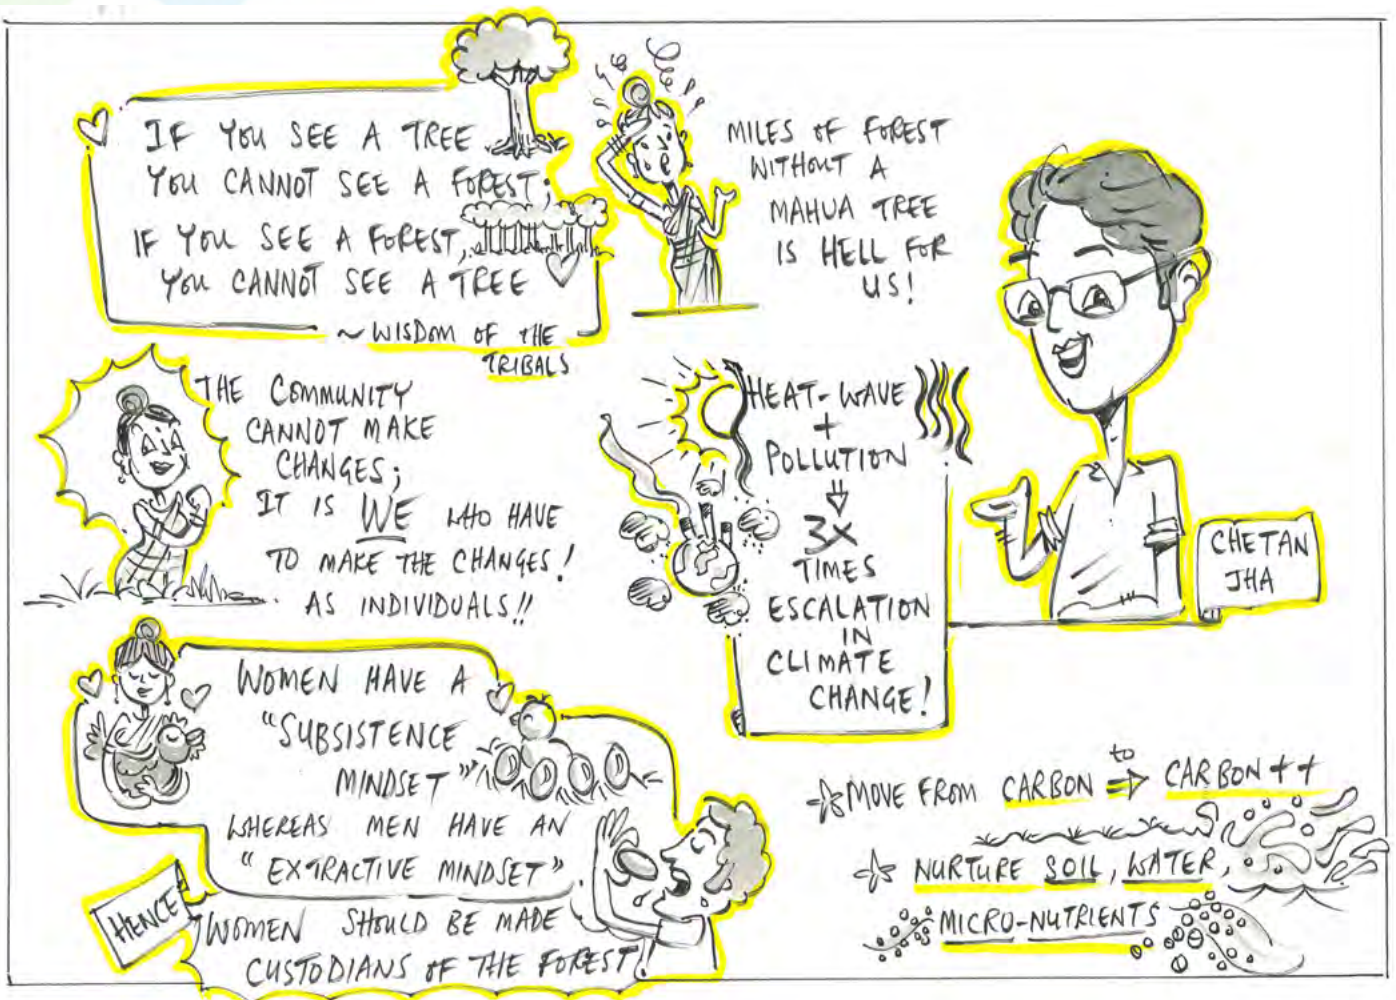 IF YOU SEE A TREE
YOU CANNOT SEE A FOREST;
IF YOU SEE A FOREST,
YOU CANNOT SEE A TREE
~ WISDOM OF THE
TRIBALS
MILES OF FOREST
WITHOUT A
MAHUA TREE
IS HELL FOR
US!
THE COMMUNITY
CANNOT MAKE
CHANGES;
IT IS WE WHO HAVE
TO MAKE THE CHANGES!
AS INDIVIDUALS!!
HEAT-WAVE
+
POLLUTION
⇓
3X
TIMES
ESCALATION
IN
CLIMATE
CHANGE!
CHETAN
JHA
WOMEN HAVE A
"SUBSISTENCE
MINDSET"
WHEREAS MEN HAVE AN
"EXTRACTIVE MINDSET"
HENCE
WOMEN SHOULD BE MADE
CUSTODIANS OF THE FOREST
MOVE FROM CARBON to ⇒ CARBON ++
NURTURE SOIL, WATER,
MICRO-NUTRIENTS